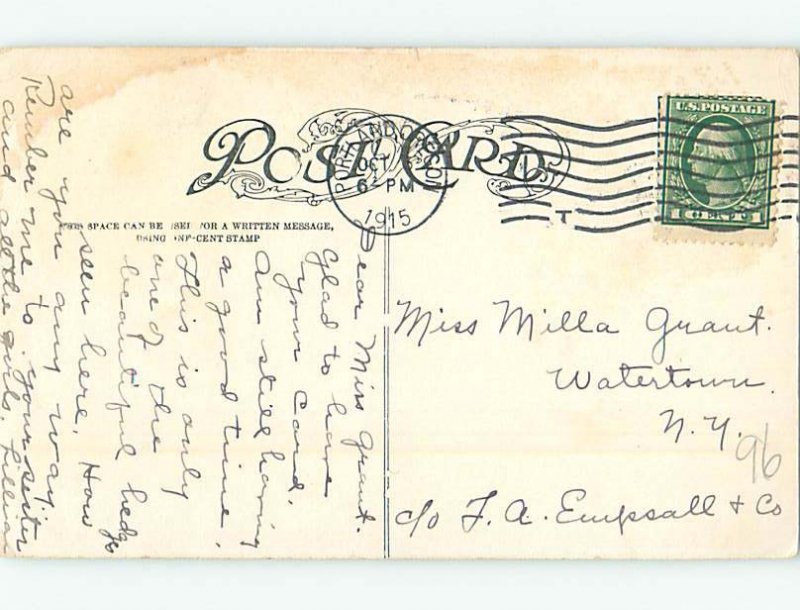 POST CARD
THIS SPACE CAN BE USED FOR A WRITTEN MESSAGE,
USING ONE-CENT STAMP
PORTLAND, OREG.
OCT
6 PM
1915
U.S. POSTAGE
1 CENT 1
T
Dear Miss Grant.
Glad to have
your card.
Am still having
a good time,
This is only
one of the
beautiful hedges
seen here. How
are you any way.
Rember me to your sister
and all the girls. Lillian
Miss Milla Grant.
Watertown.
N.Y.
96
c/o F. A. Empsall & Co